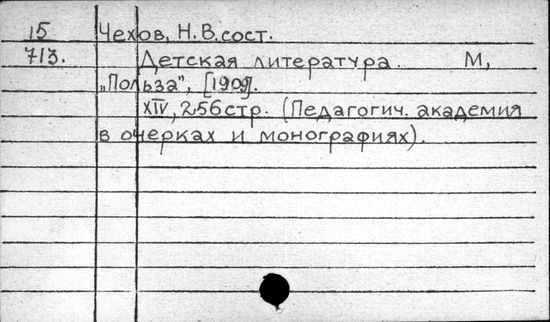 15 Чехов, Н. В. сост.
713. Детская литература. М,
„Польза", [1909].
XIV, 256 стр. (Педагогич. академия
в очерках и монографиях).